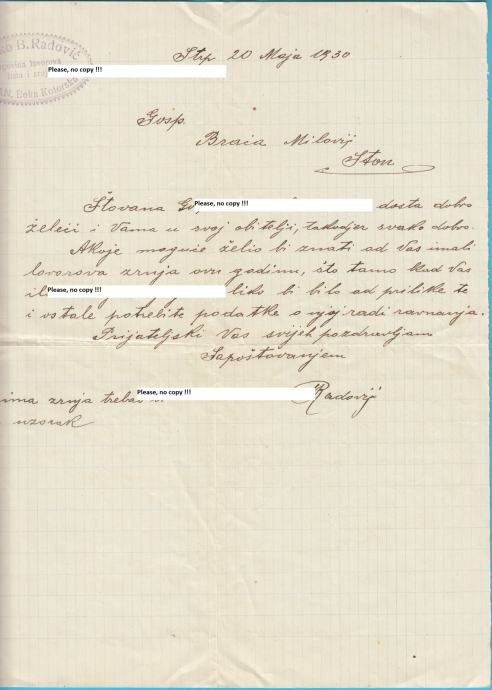 ko B. Radović
Boka Kotorska
Please, no copy !!!
Strp 20 Maja 1930
Gosp.
Braća Milović
Ston
Štovana Please, no copy !!! dosta dobro
želeći i Vama u svoj obitelji, takodjer svako dobro.
Ako je moguće želio bi znati od Vas imali
lovorova zrnja ovu godinu, što tamo kod Vas
Please, no copy !!! liko bi bilo od prilike te
i ostale potrebite podatke o njoj radi ravnanja.
Prijateljski Vas svijeh pozdravljam
Sapoštovanjem
Please, no copy !!!
ima zrnja treba Radović
uzorak